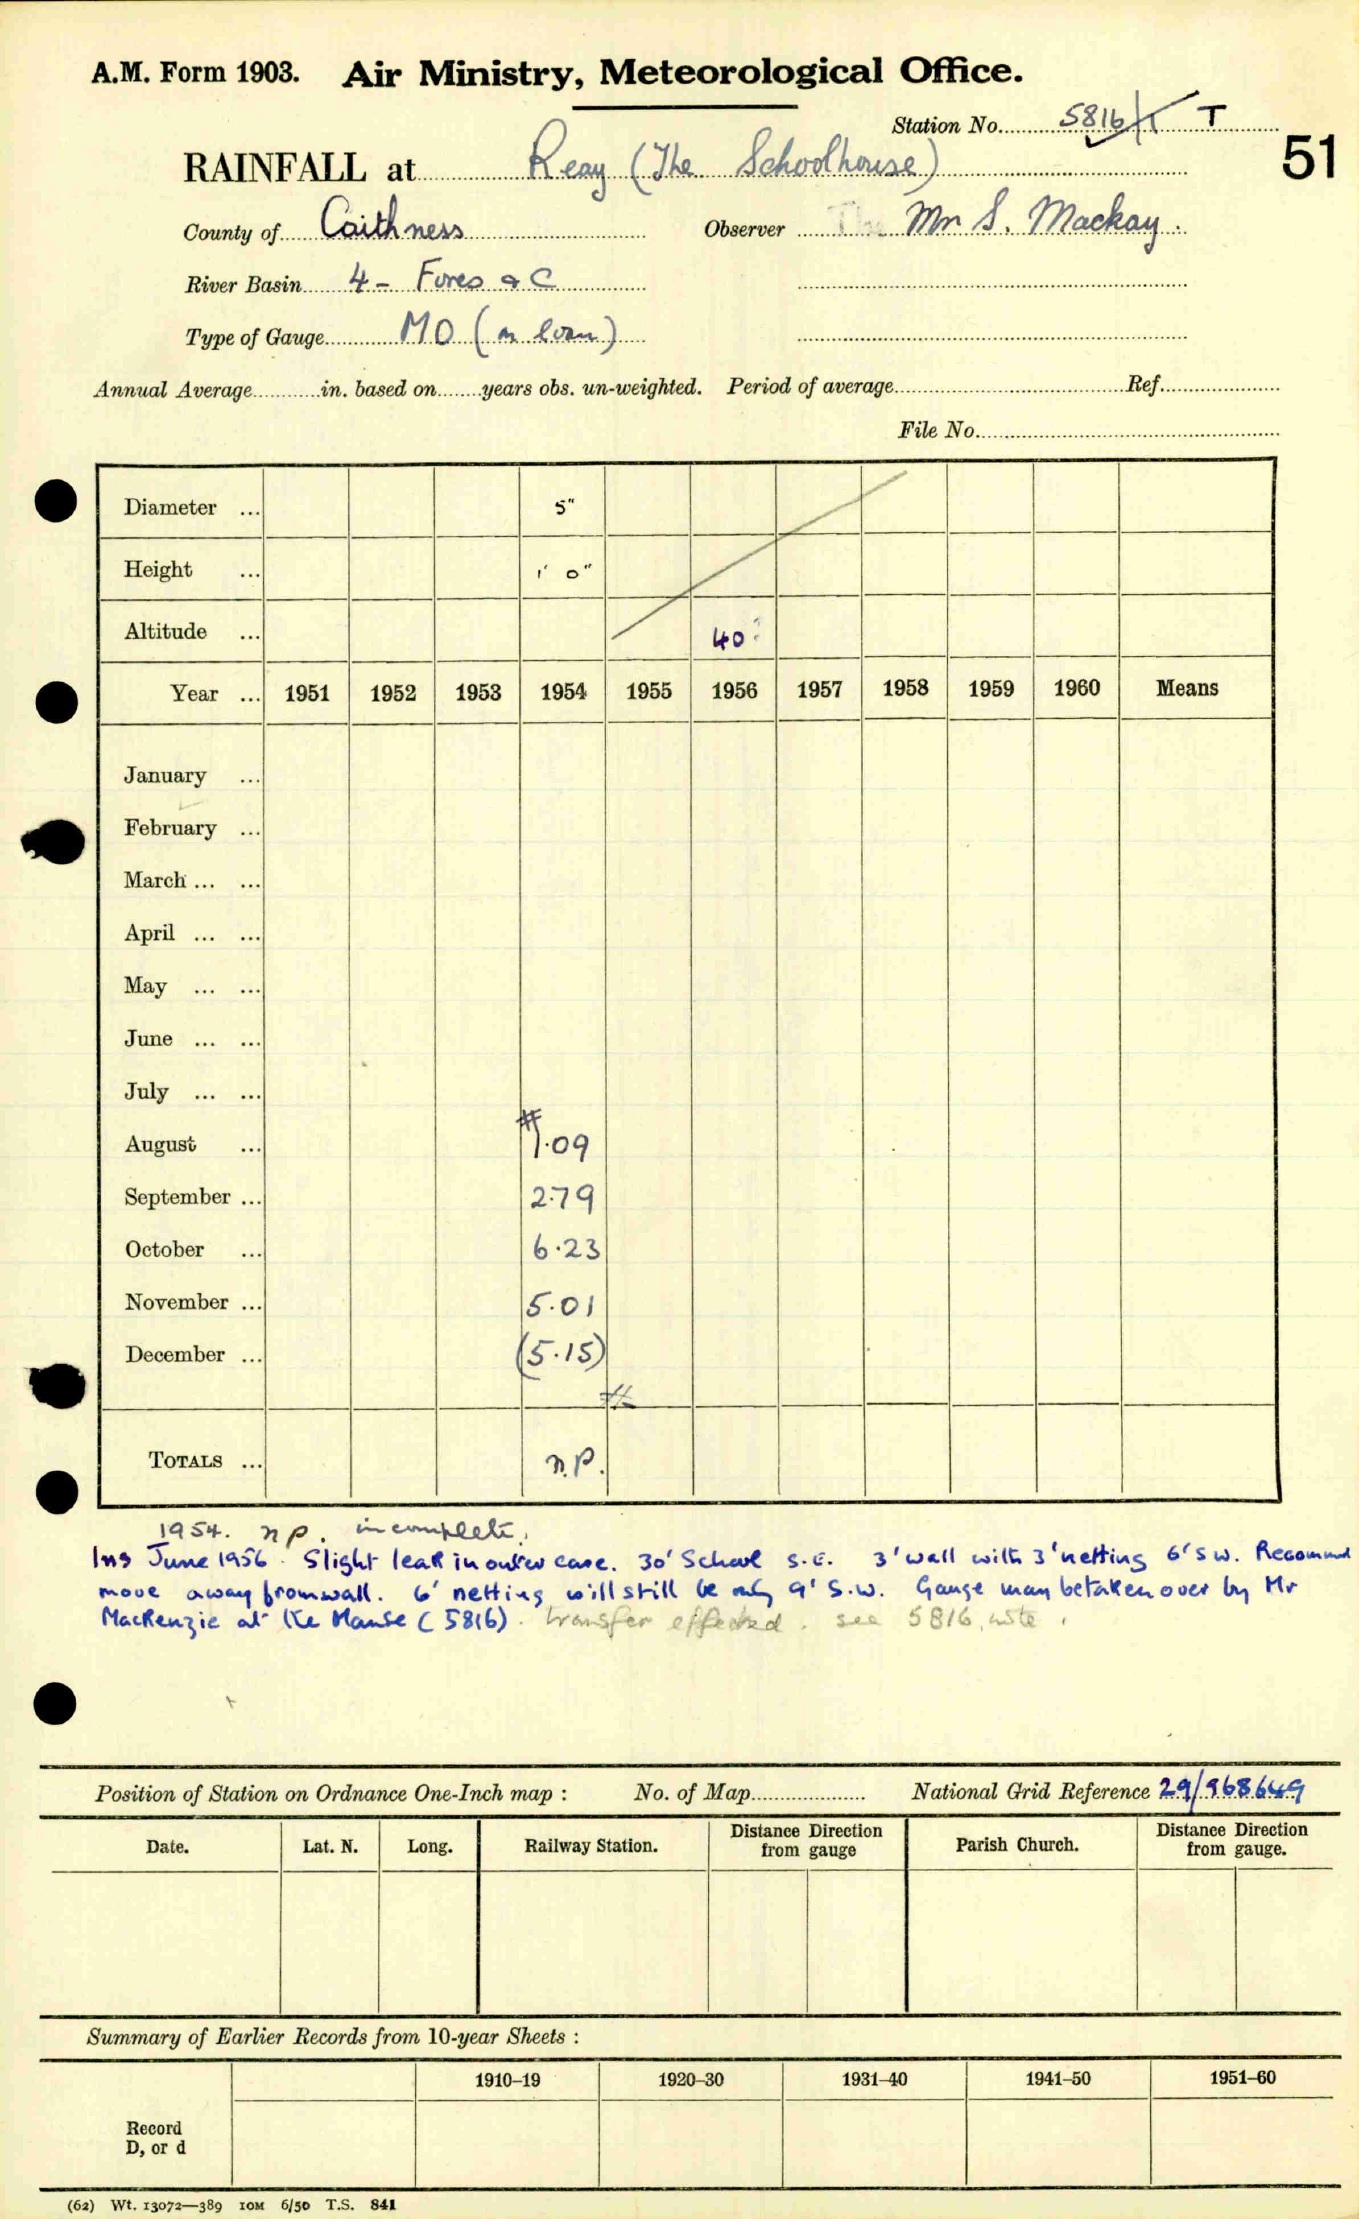 A.M. Form 1903. Air Ministry, Meteorological Office.
Station No. 5816/1 T
51
RAINFALL at Reay (The Schoolhouse)
County of Caithness Observer Mr S. Mackay.
River Basin 4 - Forss & C
Type of Gauge MO (on loan)
Annual Average in. based on years obs. un-weighted. Period of average Ref.
File No.
Diameter ... 5"
Height ... 1' 0"
Altitude ... 40'
Year ... 1951 1952 1953 1954 1955 1956 1957 1958 1959 1960 Means
January ...
February ...
March ... ...
April ... ...
May ... ...
June ... ...
July ... ...
August ... 1.09
September ... 2.79
October ... 6.23
November ... 5.01
December ... (5.15)
TOTALS ... n.p.
1954. n p. incomplete.
Ins June 1956. Slight leak in outer case. 30' School S.E. 3' wall with 3' netting 6' SW. Recommend
move away from wall. 6' netting will still be only 9' S.W. Gauge may be taken over by Mr
MacKenzie at the Manse (5816). transfer effected. see 5816, note.
Position of Station on Ordnance One-Inch map : No. of Map National Grid Reference 29/968649
Date. Lat. N. Long. Railway Station. Distance Direction from gauge Parish Church. Distance Direction from gauge.
Summary of Earlier Records from 10-year Sheets :
1910–19 1920–30 1931–40 1941–50 1951–60
Record
D, or d
(62) Wt. 13072—389 10M 6/50 T.S. 841